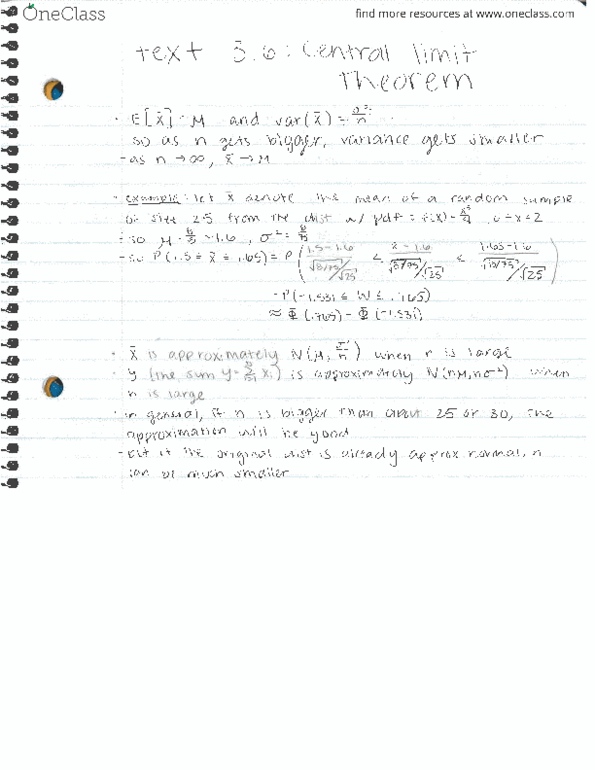 OneClass
find more resources at www.oneclass.com
text 5.6: Central limit
Theorem
· E[X̄] = μ and var(X̄) = σ²/n
so as n gets bigger, variance gets smaller
- as n → ∞, X̄ → μ
· example: let X̄ denote the mean of a random sample
of size 25 from the dist w/ pdf = f(x) = x³/4, 0 < x < 2
- so μ = 8/5 = 1.6, σ² = 8/75
- so P(1.5 ≤ X̄ ≤ 1.65) = P(1.5-1.6/√8/75/√25 ≤ X̄-1.6/√8/75/√25 ≤ 1.65-1.6/√8/75/√25)
= P(-1.531 ≤ W ≤ .765)
≈ Φ(.765) - Φ(-1.531)
· X̄ is approximately N(μ, σ²/n) when n is large
· Y (the sum Y = Σ Xi) is approximately N(nμ, nσ²) when
n is large
· in general, if n is bigger than about 25 or 30, the
approximation will be good
- but if the original dist is already approx normal, n
can be much smaller